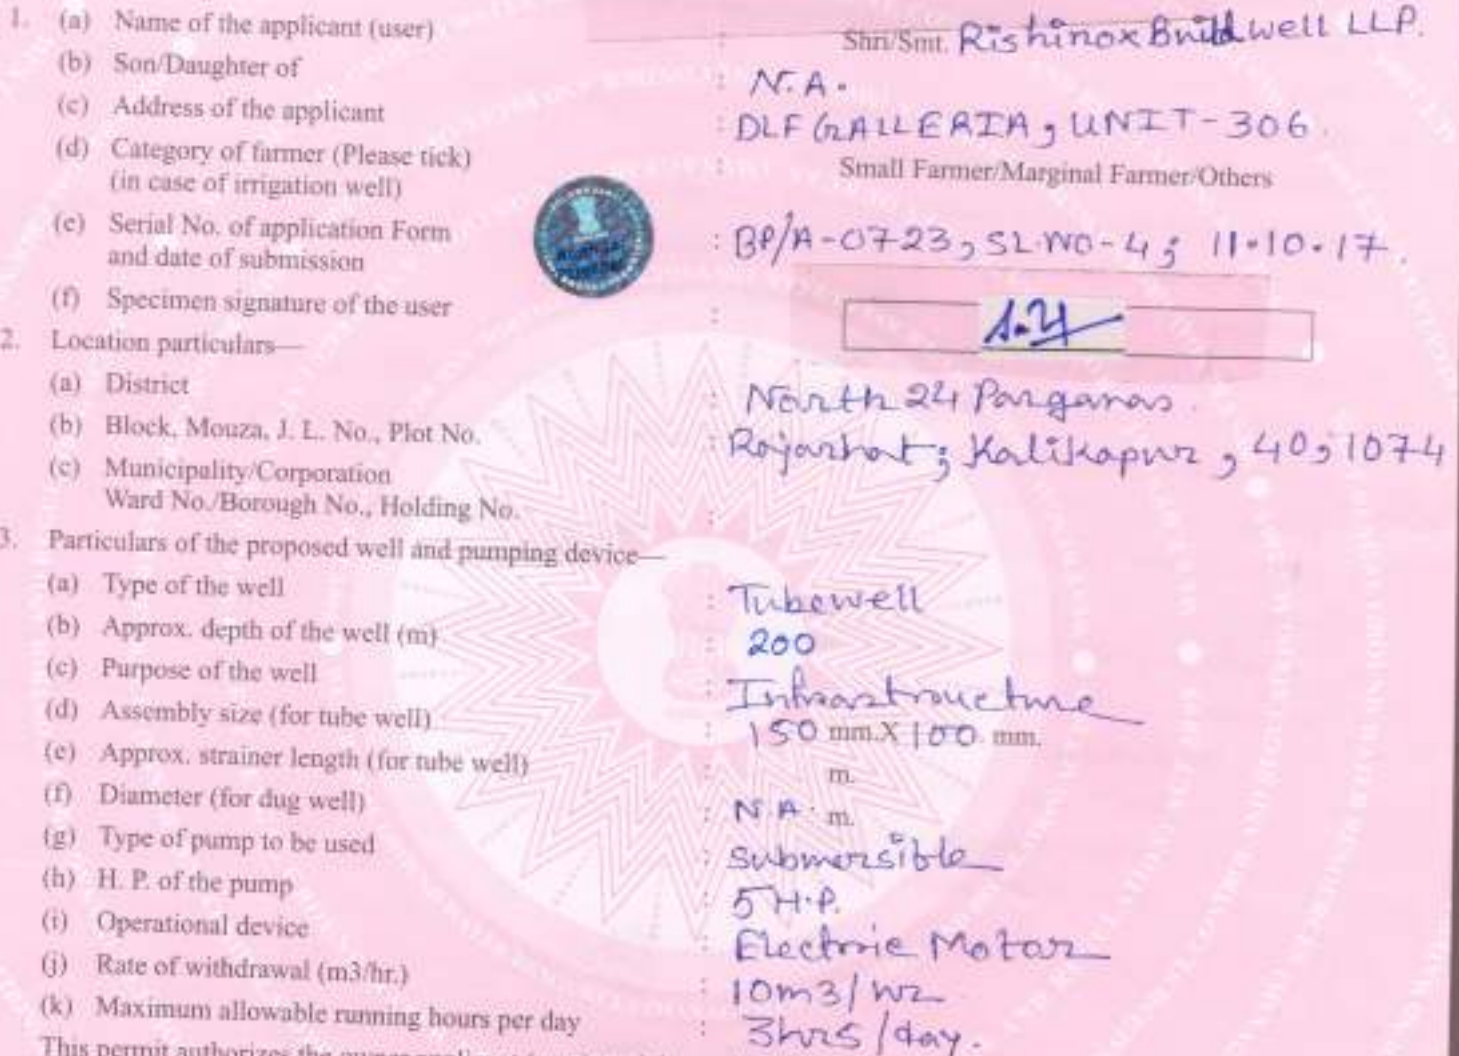 1. (a) Name of the applicant (user) : Shri/Smt. Rishinox Buildwell LLP.
(b) Son/Daughter of : N.A.
(c) Address of the applicant : DLF GALLERIA, UNIT-306
(d) Category of farmer (Please tick) : Small Farmer/Marginal Farmer/Others
(in case of irrigation well)
(e) Serial No. of application Form : BP/A-0723, SL NO-4; 11.10.17.
and date of submission
(f) Specimen signature of the user :
2. Location particulars—
(a) District : North 24 Parganas.
(b) Block, Mouza, J. L. No., Plot No. : Rajarhat; Kalikapur, 40, 1074
(c) Municipality/Corporation
Ward No./Borough No., Holding No. :
3. Particulars of the proposed well and pumping device—
(a) Type of the well : Tubewell
(b) Approx. depth of the well (m) : 200
(c) Purpose of the well : Infrastructure
(d) Assembly size (for tube well) : 150 mm.X 100 mm.
(e) Approx. strainer length (for tube well) : m.
(f) Diameter (for dug well) : N.A. m.
(g) Type of pump to be used : Submersible
(h) H. P. of the pump : 5 H.P.
(i) Operational device : Electric Motor
(j) Rate of withdrawal (m3/hr.) : 10m3/hr
(k) Maximum allowable running hours per day : 3hrs/day.
This permit authorizes the